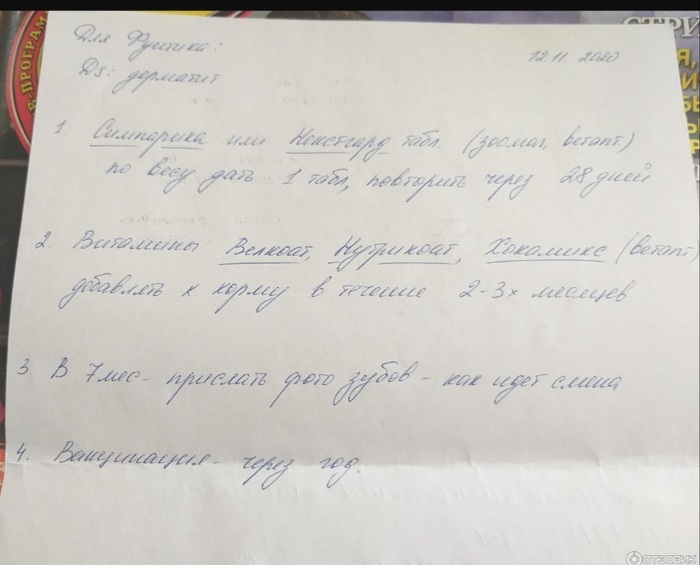 Для Фунтика:
12.11.2020
Ds: дерматит
1. Симпарика или Нексгард табл. (зоомаг, ветапт.)
по весу дать 1 табл, повторить через 28 дней
2. Витамины Велкоат, Нутрикоат, Хокамикс (ветапт)
добавлять к корму в течение 2-3х месяцев
3. В 7 мес - прислать фото зубов - как идет смена
4. Вакцинация - через год.
ПРОГРАМ
СТРИ
ОТЗОВИК